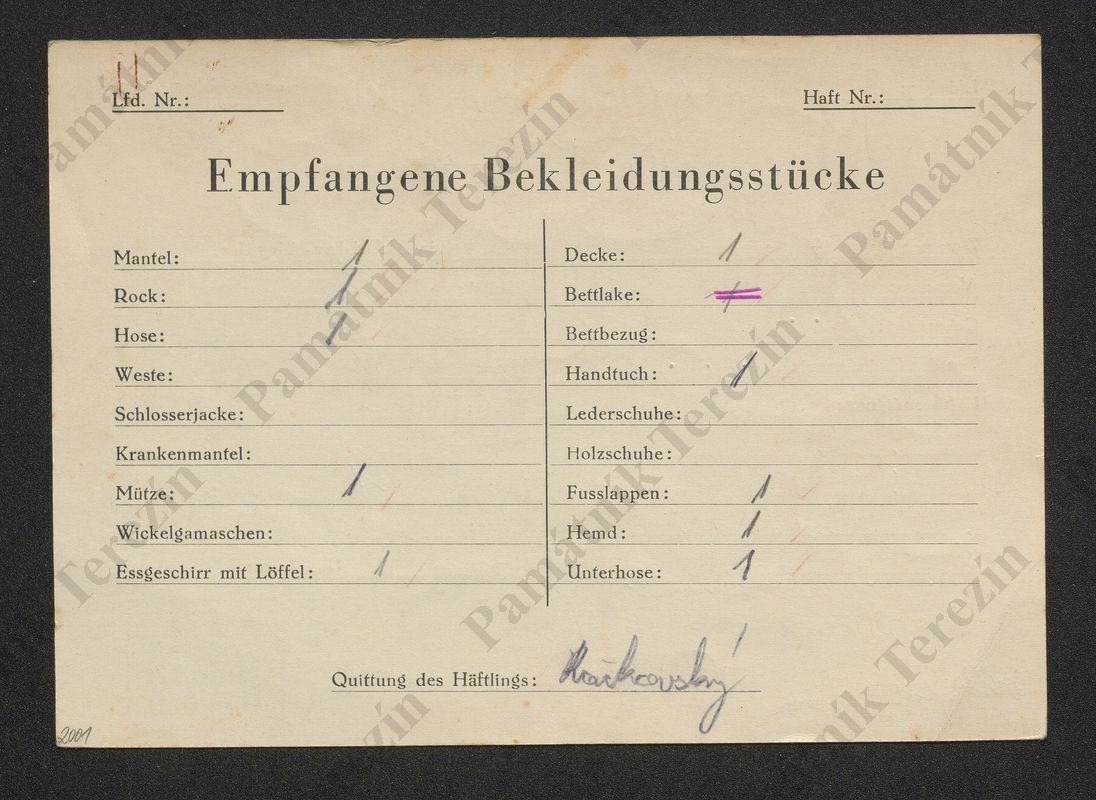 Lfd. Nr.:
Haft Nr.:
Empfangene Bekleidungsstücke
Mantel: 1
Rock: 1
Hose: 1
Weste:
Schlosserjacke:
Krankenmantel:
Mütze: 1
Wickelgamaschen:
Essgeschirr mit Löffel: 1
Decke: 1
Bettlake: 1
Bettbezug:
Handtuch: 1
Lederschuhe:
Holzschuhe:
Fusslappen: 1
Hemd: 1
Unterhose: 1
Quittung des Häftlings:
2001
Památník Terezín